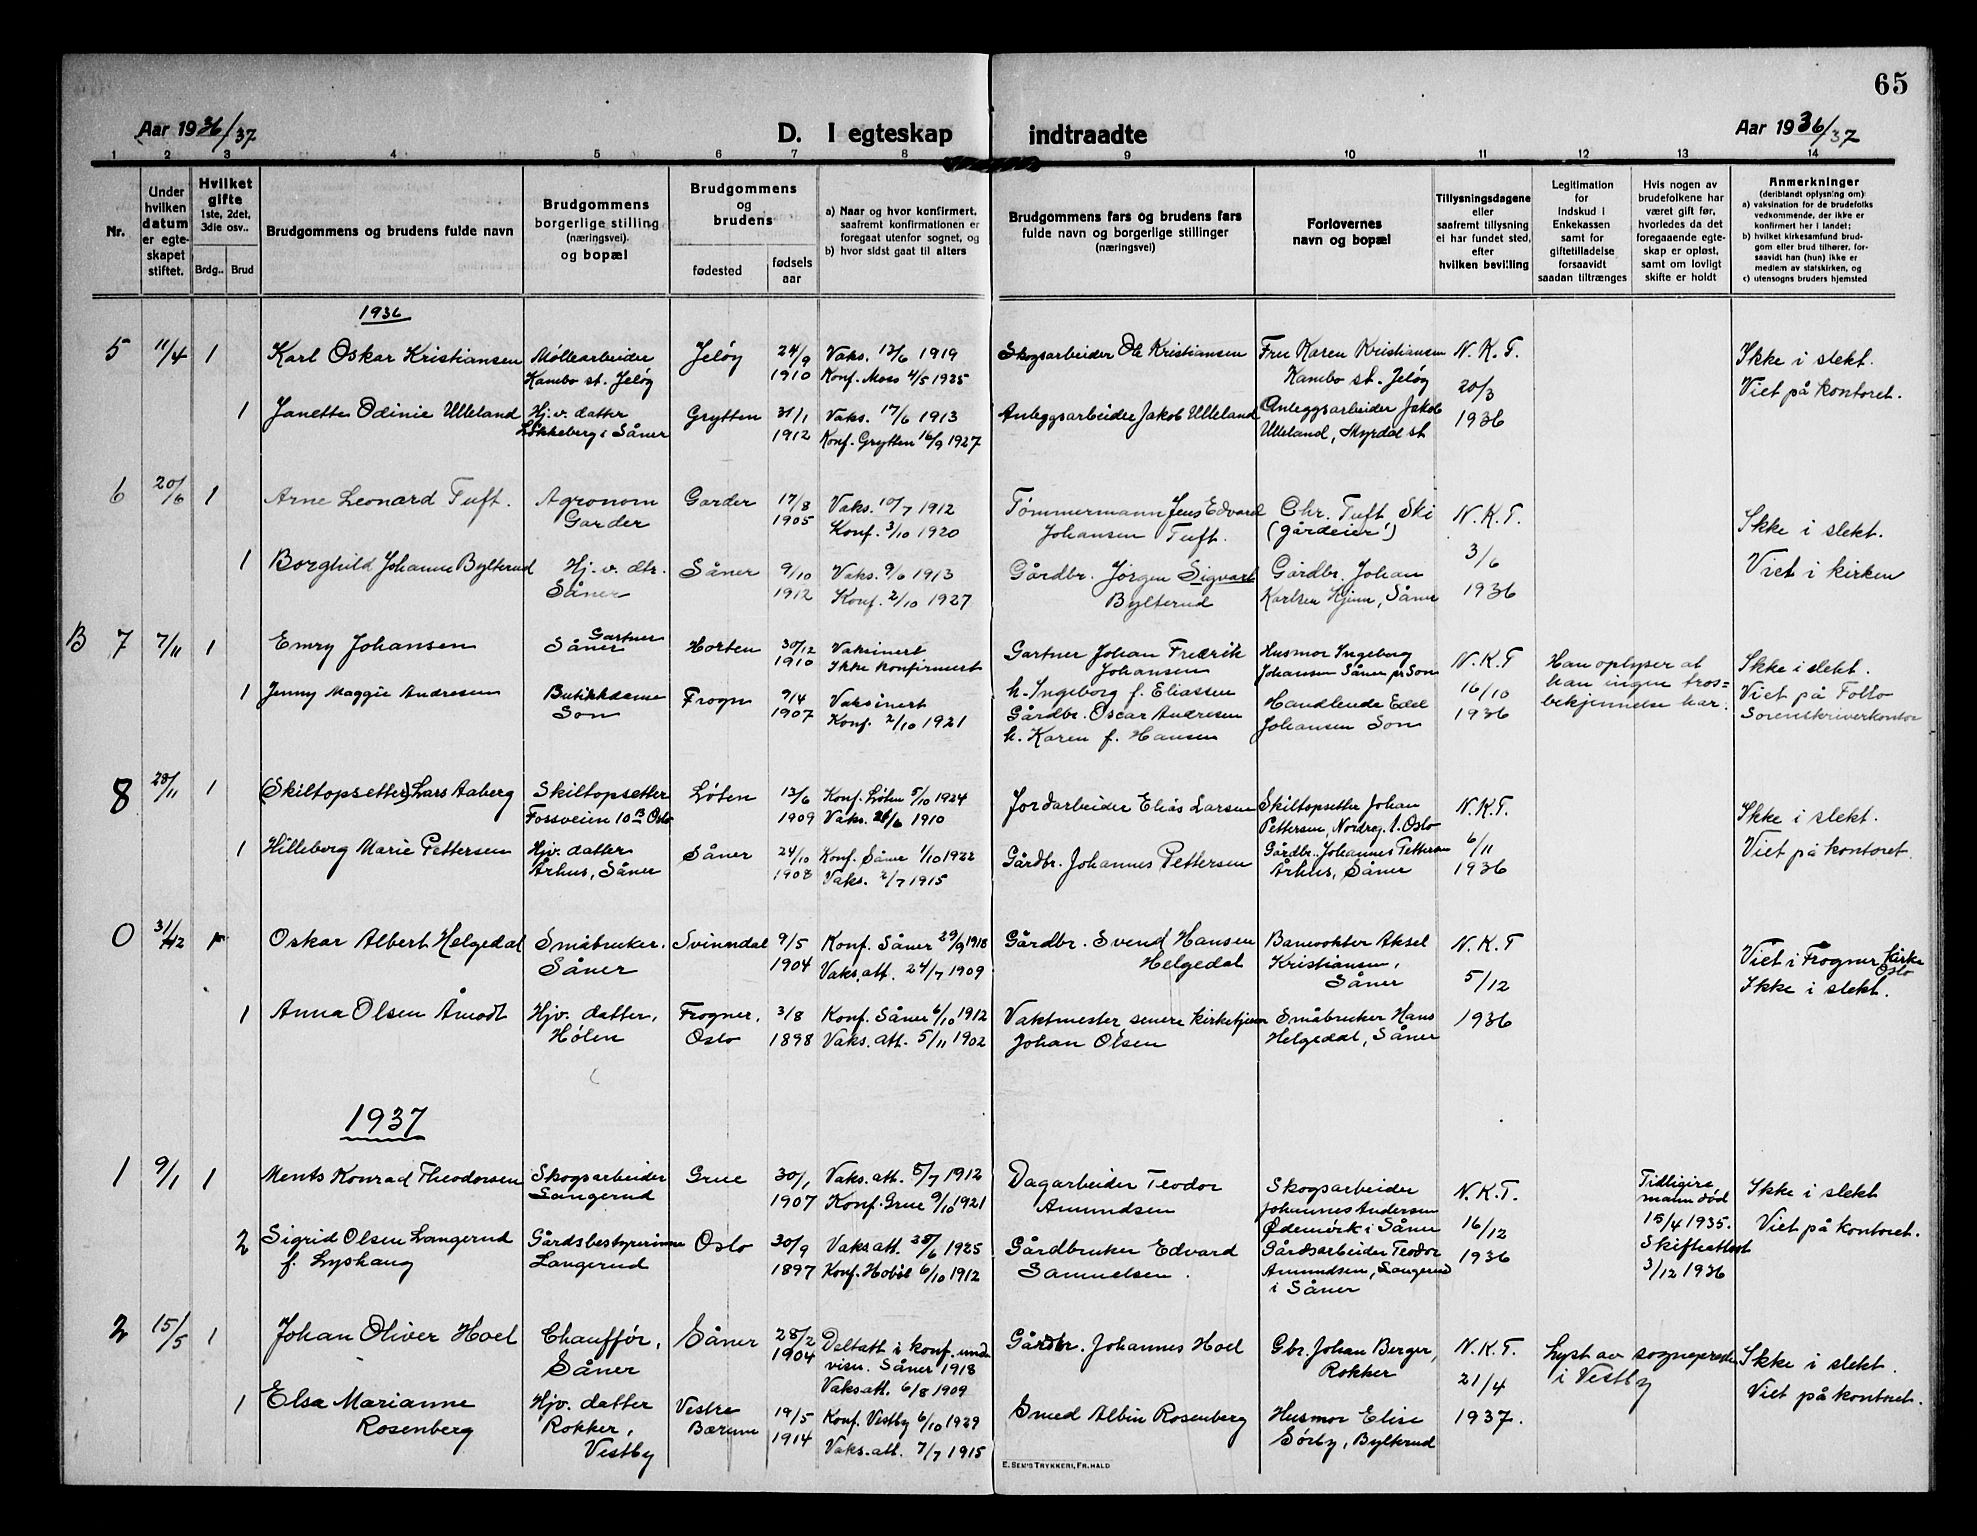 65
Aar 1936/37
D. I egteskap indtraadte
Aar 1936/37
1 2 3 4 5 6 7 8 9 10 11 12 13 14
Nr.
Under hvilken datum er egteskapet stiftet.
Hvilket gifte 1ste, 2det, 3die osv..
Brdg.. Brud
Brudgommens og brudens fulde navn
Brudgommens borgerlige stilling (næringsvei) og bopæl
Brudgommens og brudens
fødested
fødsels aar
a) Naar og hvor konfirmert, saafremt konfirmationen er foregaat utenfor sognet, og
b) hvor sidst gaat til alters
Brudgommens fars og brudens fars fulde navn og borgerlige stillinger (næringsvei)
Forlovernes navn og bopæl
Tillysningsdagene eller saafremt tillysning ei har fundet sted, efter hvilken bevilling
Legitimation for Indskud i Enkekassen samt for giftetilladelse forsaavidt saadan tiltrænges
Hvis nogen av brudefolkene har været gift før, hvorledes da det foregaaende egteskap er opløst, samt om lovligt skifte er holdt
Anmerkninger
(deriblandt oplysning om)
a) vaksination for de brudefolks vedkommende, der ikke er konfirmert her i landet;
b) hvilket kirkesamfund brudgom eller brud tilhører, forsaavidt han (hun) ikke er medlem av statskirken, og
c) utensogns bruders hjemsted
1936
5 11/4 1 Karl Oskar Kristiansen
Møllearbeider
Kambo st. Jeløy
Jeløy
24/9
1910
Vaks. 12/6 1919
Konf. Moss 4/5 1925
Skogsarbeider Ole Kristiansen
Fru Karen Kristiansen
Kambo st. Jeløy
N.K.T.
20/3
1936
Ikke i slekt.
Viet på kontoret.
1 Janette Odinie Ulleland
Hj. v. datter
Løkkeberg i Såner
Grytten
31/1
1912
Vaks. 17/6 1913
Konf. Grytten 16/9 1927
Anleggsarbeider Jakob Ulleland
Anleggsarbeider Jakob
Ulleland, Myrdal st
6 20/6 1 Arne Leonard Tuft.
Agronom
Garder
Garder
17/8
1905
Vaks. 10/7 1912
Konf. 3/10 1920
Tømmermann Jens Edvard
Johansen Tuft.
Chr. Tuft Ski
(gårdeier)
N.K.T.
3/6
1936
Ikke i slekt.
Viet i kirken
1 Borghild Johanne Bylterud
Hj. v. dtr.
Såner
Såner
9/10
1912
Vaks. 9/6 1913
Konf. 2/10 1927
Gårdbr. Jörgen Sigvart
Bylterud
Gårdbr. Johan
Karlsen Kjenn, Såner
B 7 7/11 1 Emry Johansen
Gartner
Såner
Horten
30/12
1910
Vaksinert
Ikke konfirmert
Gartner Johan Fredrik
Johansen
h. Ingeborg f. Eliassen
Husmor Ingeborg
Johansen Såner pr Son
N.K.T
16/10
1936
Han oplyser at
han ingen tros=
bekjennelse har.
Ikke i slekt.
Viet på Follo
Sorenskriverkontor
1 Jenny Maggie Andresen
Butikkdame
Son
Frogn
9/4
1907
Vaksinert
Konf. 2/10 1921
Gårdbr. Oscar Andresen
h. Karen f. Hansen
Handlende Edel
Johansen Son
8 28/11 1 (Skiltopsetter) Lars Aaberg
Skiltopsetter
Fossveien 10B Oslo
Løten
13/6
1909
Konf. Løten 5/10 1924
Vaks. 26/6 1910
Jordarbeider Elias Larsen
Skiltopsetter Johan
Pettersen, Nordreg. 1. Oslo
N.K.T.
6/11
1936
Ikke i slekt.
Viet på kontoret.
1 Hilleborg Marie Pettersen
Hjv. datter
Århus, Såner
Såner
24/10
1908
Konf. Såner 1/10 1922
Vaks. 2/7 1915
Gårdbr. Johannes Pettersen
Gårdbr. Johannes Pettersen
Århus, Såner
0 31/12 1 Oskar Albert Helgedal
Småbruker.
Såner
Svinndal
9/5
1904
Konf. Såner 29/9 1918
Vaks. att. 24/7 1909
Gårdbr. Svend Hansen
Helgedal
Banevokter Aksel
Kristiansen,
Såner
N.K.T
5/12
1936
Viet i Frogner kirke
Oslo
Ikke i slekt.
1 Anna Olsen Åmodt
Hjv. datter,
Hølen
Frogner,
Oslo
3/8
1898
Konf. Såner 6/10 1912
Vaks. att. 5/11 1902
Vaktmester, senere kirketjener
Johan Olsen
Småbruker Hans
Helgedal, Såner
1937
1 9/1 1 Ments Konrad Theodorsen
Skogsarbeider
Langerud
Grue
30/1
1907
Vaks. att. 5/7 1912
Konf. Grue 9/10 1921
Dagarbeider Teodor
Amundsen
Skogsarbeider
Johannes Andersen
Ødemörk i Såner
N.K.T.
16/12
1936
Tidligere
mann død
15/4 1935.
Skifteattest
3/12 1936
Ikke i slekt
Viet på kontoret.
2 Sigrid Olsen Langerud
f. Lyshaug
Gårdsbestyrerinne
Langerud
Oslo
30/9
1897
Vaks att. 25/6 1925
Konf. Hobøl 6/10 1912
Gårdbruker Edvard
Samuelsen.
Gårdsarbeider Teodor
Amundsen, Langerud
i Såner
2 15/5 1 Johan Oliver Hoel
Chauffør,
Såner
Såner
28/2
1904
Deltatt i konf. und
visn. Såner 1918
Vaks att. 6/8 1909
Gårdbr. Johannes Hoel
Gbr. Johan Berger,
Rokker
N.K.T.
21/4
1937.
Lyst av sognepresten
i Vestby
Ikke i slekt.
Viet på kontoret.
1 Elsa Marianne
Rosenberg
Hjv. datter
Rokker,
Vestby
Vestre
Bærum
19/5
1914
Konf. Vestby 6/10 1929
Vaks. att. 7/7 1915
Smed Albin Rosenberg
Husmor Elise
Sörby, Bylterud
E. SEM'S TRYKKERI, FR.HALD